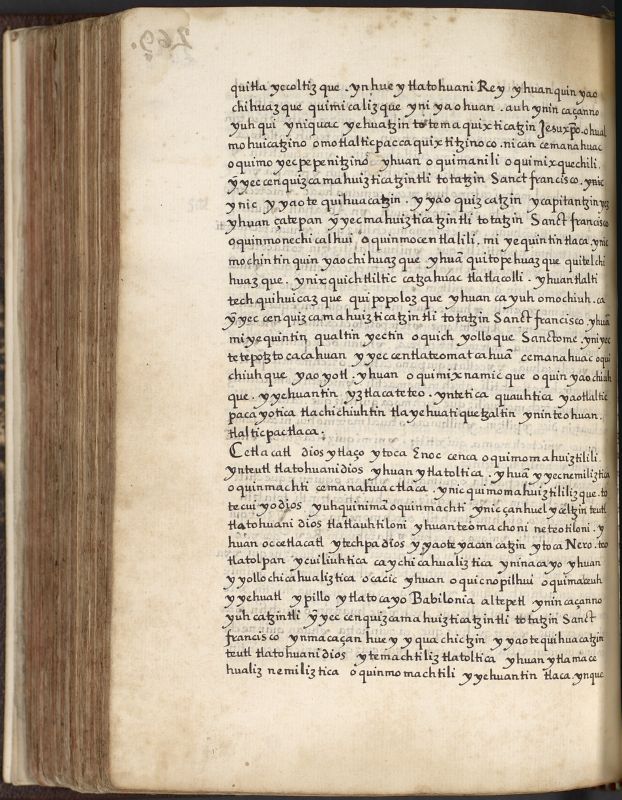 quitla yecoltiz que . yn hue y tlatohuani Rey yhuan quin yao
chihuaz que quimicaliz que yni yaohuan . auh ynin caçanno
yuh qui yniquac yehuatzin totemaquixticatzin Jesu xpo . ohual
mohuicatzino omotlalticpaccaquixtitzinoco . nican cemanahuac
oquimo yecpepenitzino yhuan oquimanili oquimixquechili .
yyeccenquizcamahuizticatzintli totatzin Sanct francisco . ynic
ynic yyaotequihuacatzin . yyaoquizcatzin ycapitantzin yez
yhuan çatepan yyecmahuizticatzintli totatzin Sanct francisco
oquinmonechicalhui oquinmocentlalili . miyequintin tlaca . ynic
mochintin quin yaochihuaz que yhuā quitopehuaz que quitelchi
huaz que . ynixquich tliltic catzahuac tlatlacolli . yhuan tlalti
tech quihuicaz que quipopoloz que yhuan ca yuh omochiuh . ca
yyeccenquizcamahuizticatzintli totatzin Sanct francisco . yhuā
miyequintin qualtin yectin oquichyolloque Sanctome . yniyec
tetepotztocacahuan yyeccentlateomatcahuā cemanahuac oqui
chiuhque yaoyotl . yhuan oquimixnamicque oquin yaochiuh
que . yyehuantin yztlacateteo . yntetica quauhtica yaotlaltic
pacayotica tlachichiuhtin tlayehuatiquetzaltin yninteohuan .
tlalticpactlaca .
Cetlacatl dios ytlaço ytoca Enoc cenca oquimomahuiztilili .
ynteutl tlatohuani dios yhuan ytlatoltica . yhuā yyecnemiliztica
oquinmachti cemanahuac tlaca . ynic quimomahuiztililizque . to
tecuiyo dios yuhquinimā oquinmachti ynic çanhuel yceltzin teutl
tlatohuani dios tlatlauhtiloni yhuan teomachoni neteotiloni . y
huan occetlacatl ytechpa dios yyaoteyacancatzin ytoca Nero . teo
tlatolpan ycuiliuhtica caychicahualiztica yninacayo yhuan
yyollochicahualiztica ocacic yhuan oquicnopilhui oquimaceuh
yyehuatl ypillo ytlatocayo Babilonia altepetl ynin caçanno
yuhcatzintli yyeccenquizcamahuizticatzintli totatzin Sanct
francisco ynimacaçan huey yquachictzin yyaotequihuacatzin
teutl tlatohuani dios ytemachtiliztlatoltica yhuan ytlamace
hualiz nemiliztica oquinmomachtili yyehuantin tlaca . ynque